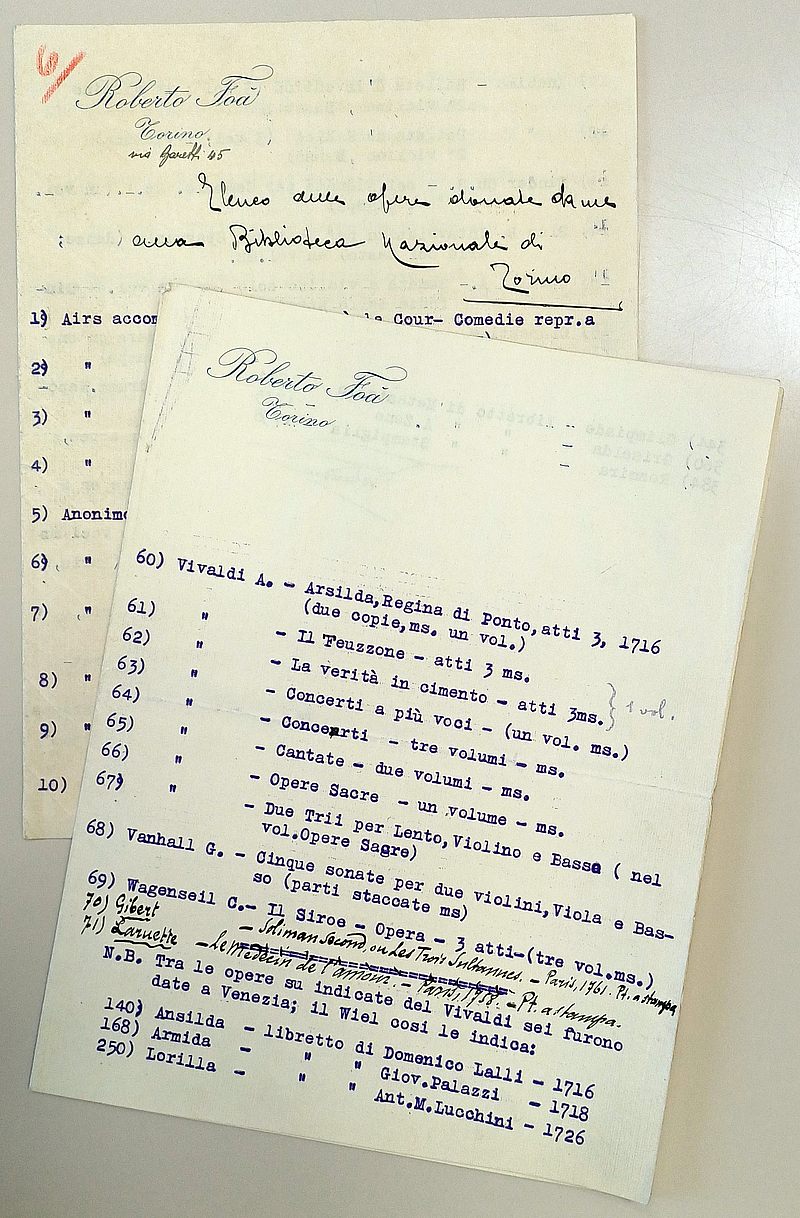 6
Roberto Foà
Torino
via Garetti 45
Elenco delle opere donate da me
alla Biblioteca Nazionale di
Torino
1) Airs accom la Cour- Comedie repr.a
2) "
3) "
4) "
5) Anonimo
6) "
7) "
8) "
9) "
10)
Roberto Foà
Torino
60) Vivaldi A. - Arsilda,Regina di Ponto,atti 3, 1716
(due copie,ms. un vol.)
61) " - Il Feuzzone - atti 3 ms.
62) " - La verità in cimento - atti 3ms. } 1 vol.
63) " - Concerti a più voci - (un vol. ms.)
64) " - Concerti - tre volumi - ms.
65) " - Cantate - due volumi - ms.
66) " - Opere Sacre - un volume - ms.
67) " - Due Trii per Lento, Violino e Basso ( nel
vol.Opere Sacre)
68) Vanhall G. - Cinque sonate per due violini,Viola e Bas-
so (parti staccate ms)
69) Wagenseil C.- Il Siroe - Opera - 3 atti-(tre vol.ms.)
70) Gibert - Soliman Second, ou Les Trois Sultannes. - Paris, 1761. Pt. a stampa
71) Laruette - Le médecin de l'amour. - Paris, 1758. - Pt. a stampa.
N.B. Tra le opere su indicate del Vivaldi sei furono
date a Venezia; il Wiel cosi le indica:
140) Ansilda - libretto di Domenico Lalli - 1716
168) Armida - " " Giov.Palazzi - 1718
250) Lorilla - " " Ant.M.Lucchini - 1726